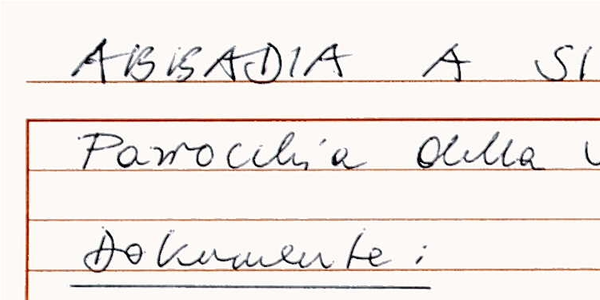 ABBADIA A SI
Parrocchia della V
Dokumente: